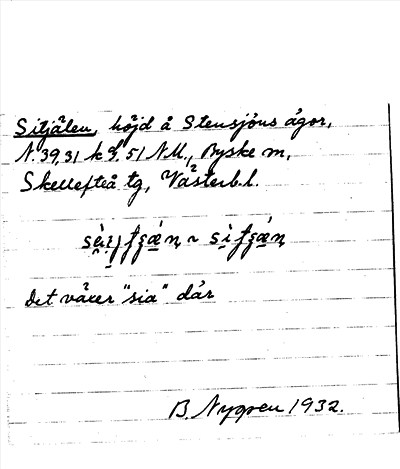 Sitjälen, höjd å Stensjöns ägor,
N. 39,31 k g. 51 N.M., Byske sn,
Skellefteå tg, Västerb. l.
det växer "sia" där
B. Nygren 1932.